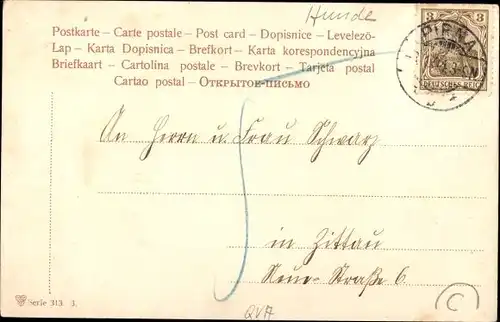 Hunde
Postkarte – Carte postale – Post card – Dopisnice – Levelező-
Lap – Karta Dopisnica – Brefkort – Karta korespondencyjna
Briefkaart – Cartolina postale – Brevkort – Tarjeta postal
Cartao postal – ОТКРЫТОЕ-ПИСЬМО
3 3
DEUTSCHES REICH
PIRNA
An Herrn u. Frau Schwarz
in Zittau
Neue-Straße 6.
Serie 313. 3.
QVA
C